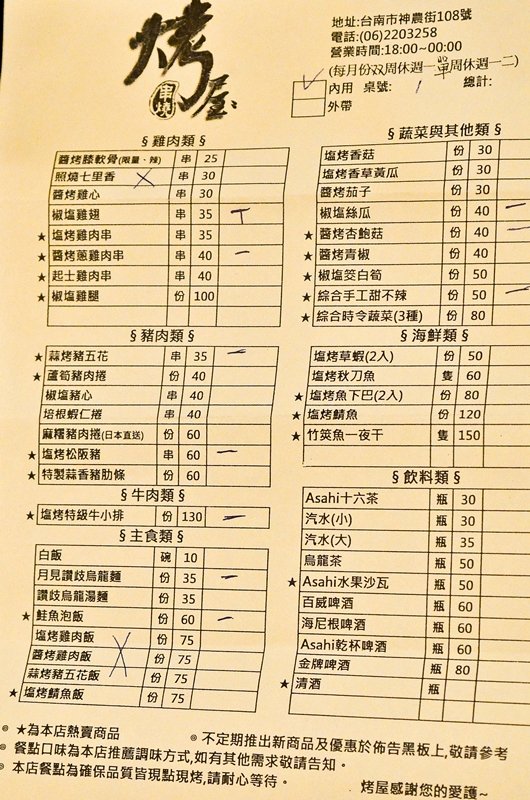 烤屋
串燒
地址:台南市神農街108號
電話:(06)2203258
營業時間:18:00~00:00
(每月份双周休週一單周休週一二)
內用 桌號: 1 總計:
外帶
§雞肉類§
醬烤膝軟骨(限量、辣) 串 25
照燒七里香 串 30
醬烤雞心 串 30
椒塩雞翅 串 35
★塩烤雞肉串 串 35
★醬烤蔥雞肉串 串 40
★起士雞肉串 串 40
★椒塩雞腿 份 100
§豬肉類§
★蒜烤豬五花 串 35
★蘆筍豬肉捲 份 40
椒塩豬心 串 40
培根蝦仁捲 串 40
麻糬豬肉捲(日本直送) 份 60
★塩烤松阪豬 串 60
★特製蒜香豬肋條 份 60
§牛肉類§
★塩烤特級牛小排 份 130
§主食類§
白飯 碗 10
月見讚歧烏龍麵 份 35
讚歧烏龍湯麵 份 35
★鮭魚泡飯 份 60
塩烤雞肉飯 份 75
醬烤雞肉飯 份 75
蒜烤豬五花飯 份 75
★塩烤鯖魚飯 份 75
§蔬菜與其他類§
塩烤香菇 份 30
塩烤香草黃瓜 份 30
醬烤茄子 份 30
椒塩絲瓜 份 40
★醬烤杏鮑菇 份 40
★醬烤青椒 份 40
★椒塩筊白筍 份 50
★綜合手工甜不辣 份 50
★綜合時令蔬菜(3種) 份 80
§海鮮類§
塩烤草蝦(2入) 份 50
塩烤秋刀魚 隻 60
★塩烤魚下巴(2入) 份 80
★塩烤鯖魚 份 120
★竹筴魚一夜干 隻 150
§飲料類§
Asahi十六茶 瓶 30
汽水(小) 瓶 30
汽水(大) 瓶 35
烏龍茶 瓶 50
★Asahi水果沙瓦 瓶 50
百威啤酒 瓶 60
海尼根啤酒 瓶 60
Asahi乾杯啤酒 瓶 60
金牌啤酒 瓶 80
★清酒 瓶
◎ ★為本店熱賣商品 ◎ 不定期推出新商品及優惠於佈告黑板上,敬請參考
◎ 餐點口味為本店推薦調味方式,如有其他需求敬請告知。
◎ 本店餐點為確保品質皆現點現烤,請耐心等待。
烤屋感謝您的愛護~